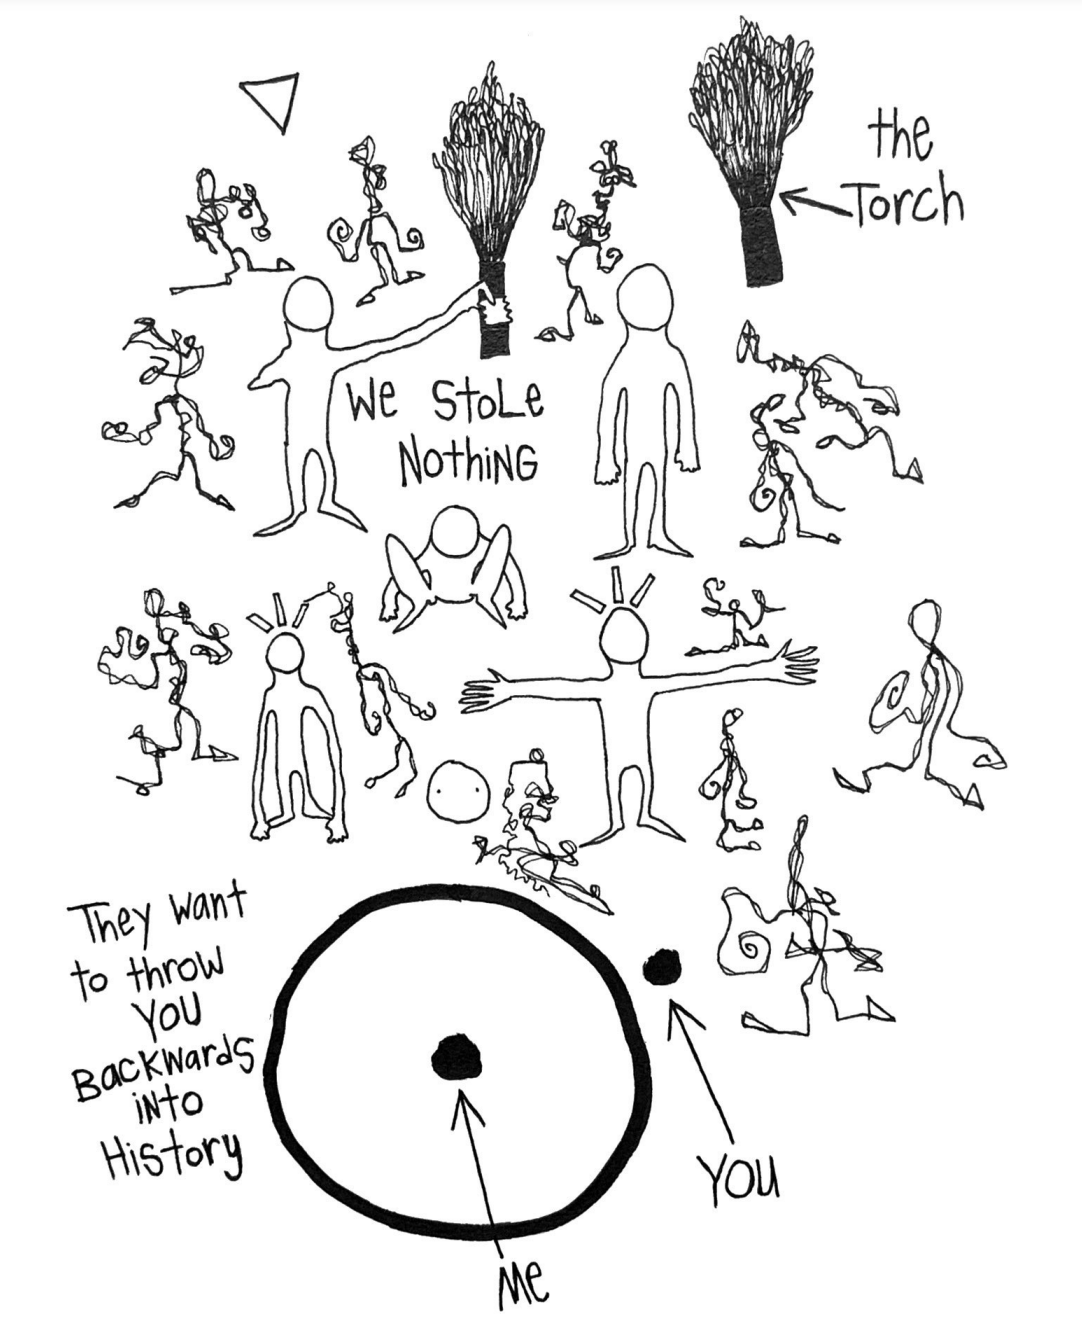 the
Torch
We StoLe
NothiNG
They want
to throw
YOU
BacKwards
iNto
History
YOU
Me